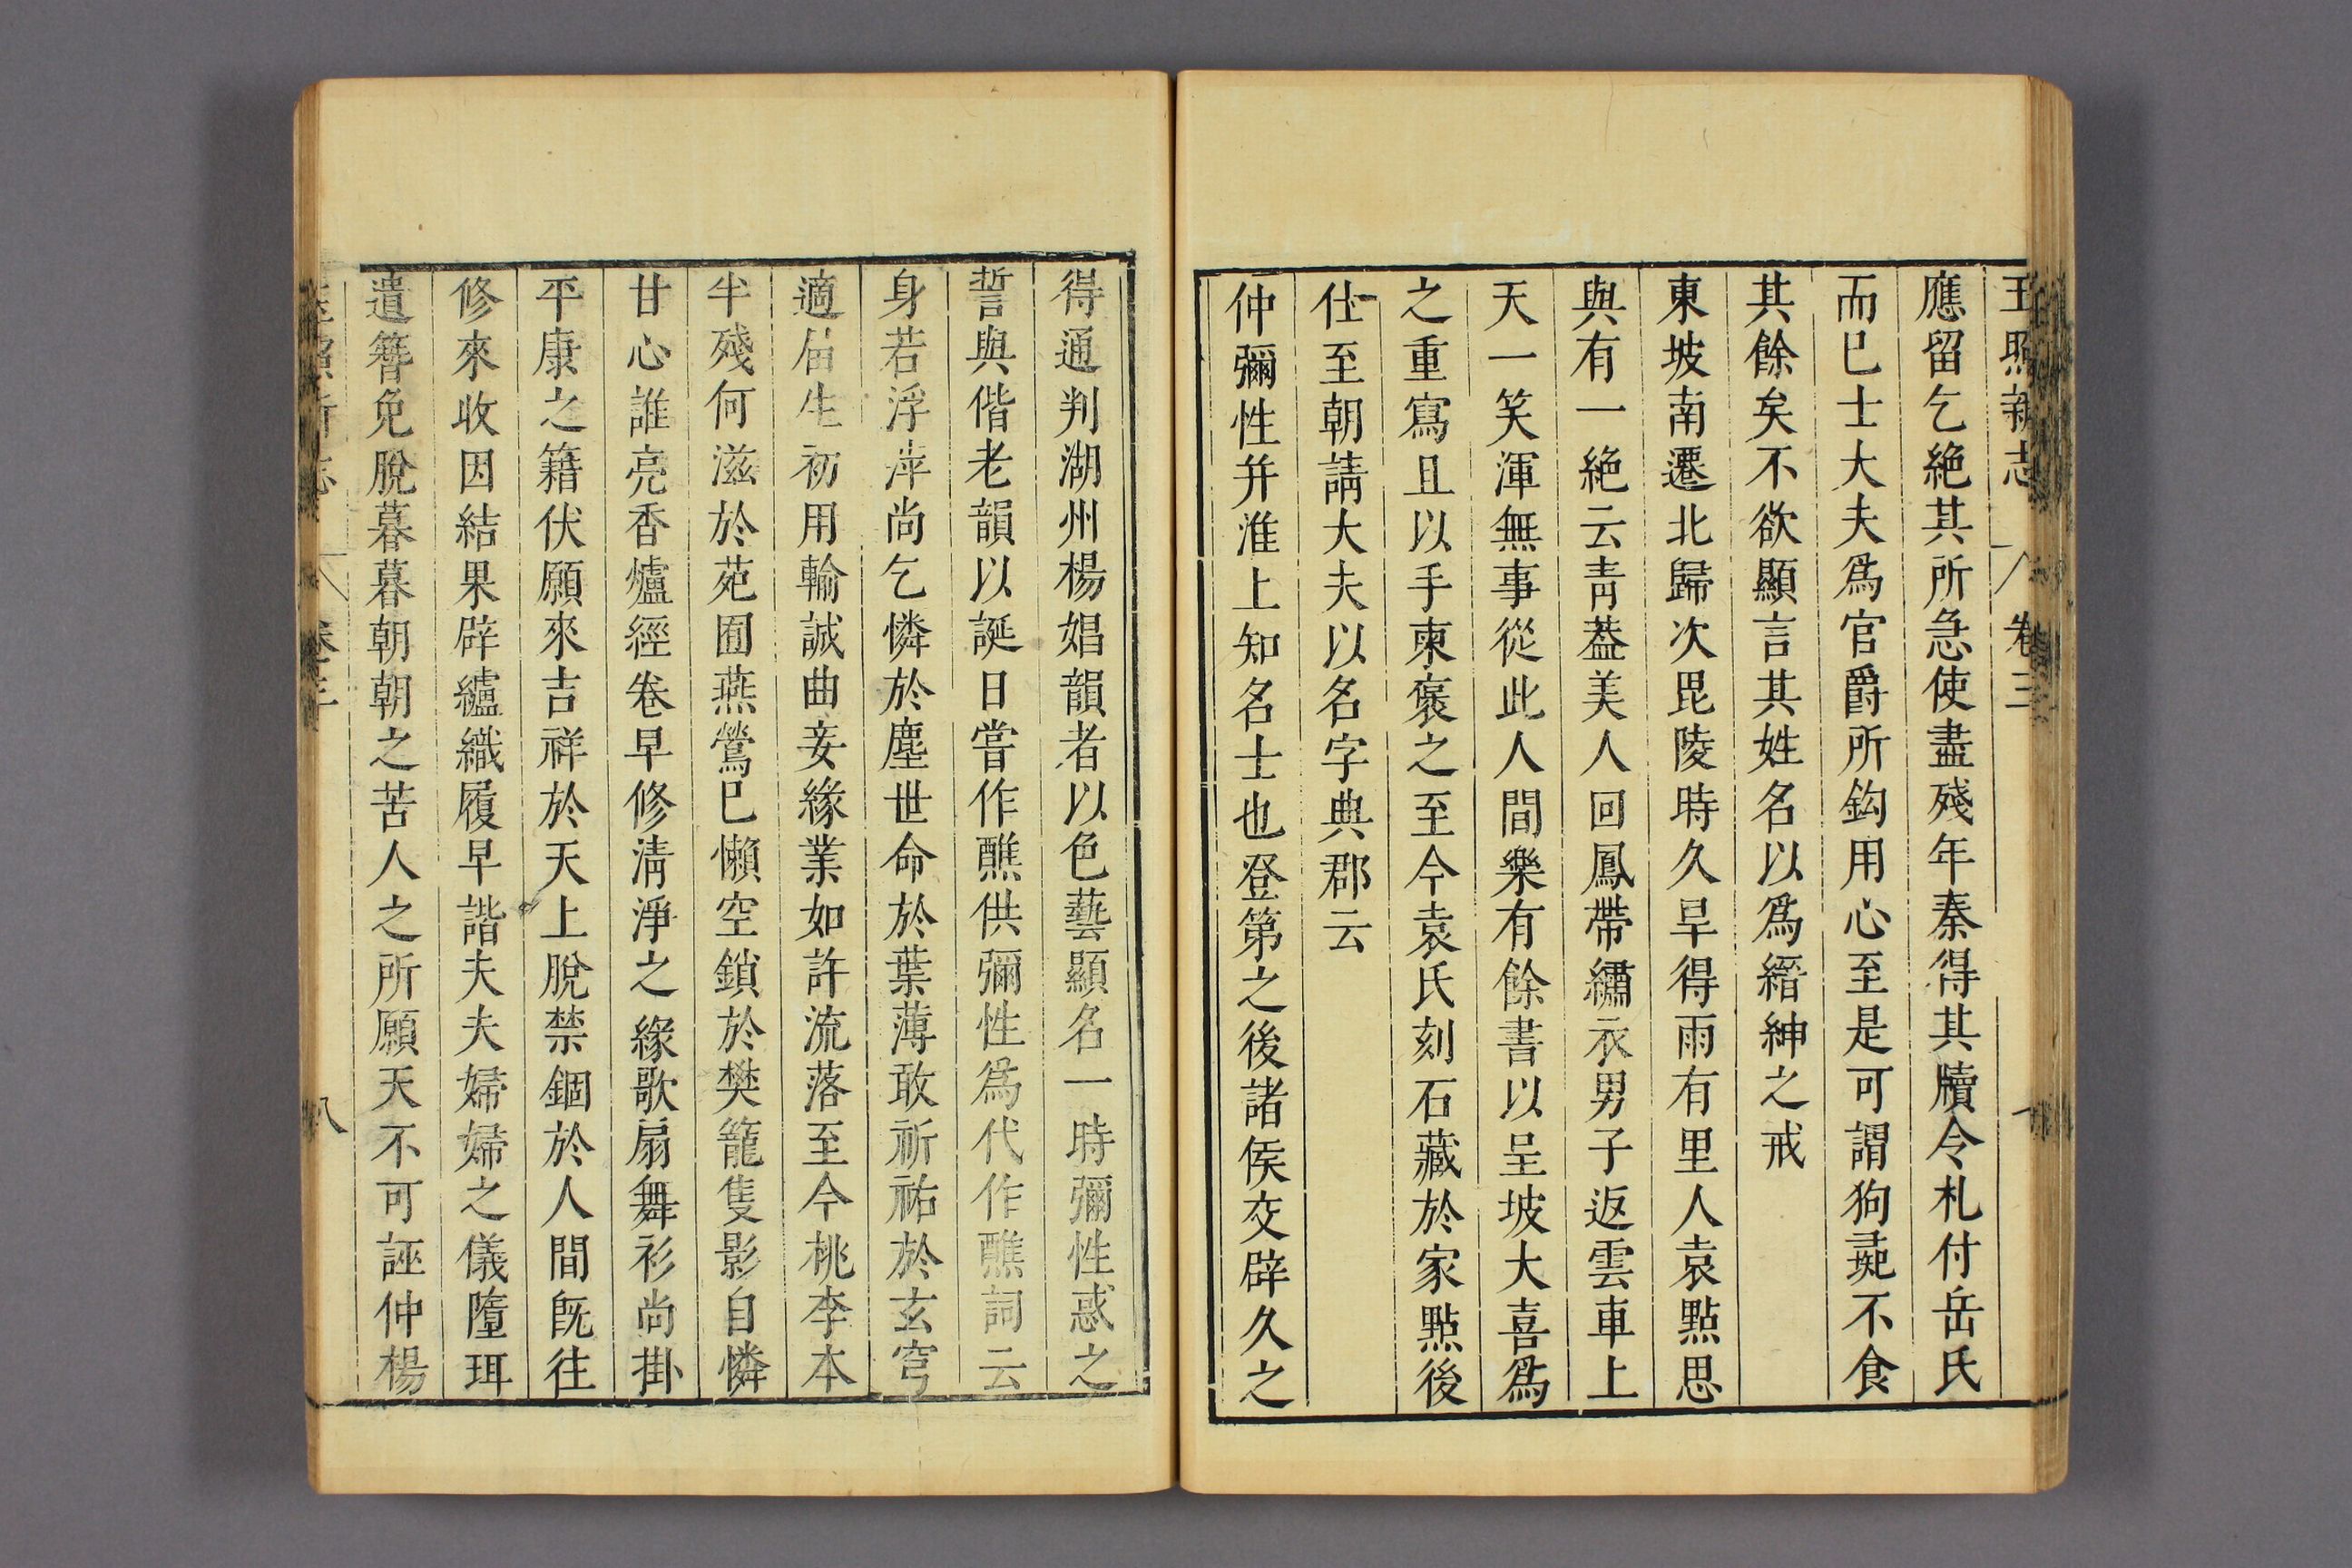 玉照新志 卷三
應留乞絶其所急使盡殘年秦得其牘令札付岳氏
而已士大夫爲官爵所鈎用心至是可謂狗彘不食
其餘矣不欲顯言其姓名以爲縉紳之戒
東坡南遷北歸次毘陵時久旱得雨有里人袁點思
與有一絶云青蓋美人回鳳帶繡衣男子返雲車上
天一笑渾無事從此人間樂有餘書以呈坡大喜爲
之重寫且以手柬褒之至今袁氏刻石藏於家點後
仕至朝請大夫以名字典郡云
仲彌性并淮上知名士也登第之後諸侯交辟久之
得通判湖州楊娼韻者以色藝顯名一時彌性惑之
誓與偕老韻以誕日嘗作醮供彌性爲代作醮詞云
身若浮萍尚乞憐於塵世命於葉薄敢祈祐於玄穹
適屆生初用輸誠曲妾緣業如許流落至今桃李本
半殘何滋於苑囿燕鶯已懶空鎖於樊籠隻影自憐
甘心誰亮香爐經卷早修清淨之緣歌扇舞衫尚掛
平康之籍伏願來吉祥於天上脫禁錮於人間旣往
修來收因結果辟纑織屨早諧夫夫婦婦之儀墮珥
遺簪免脫暮暮朝朝之苦人之所願天不可誣仲楊
玉照新志 卷三 八